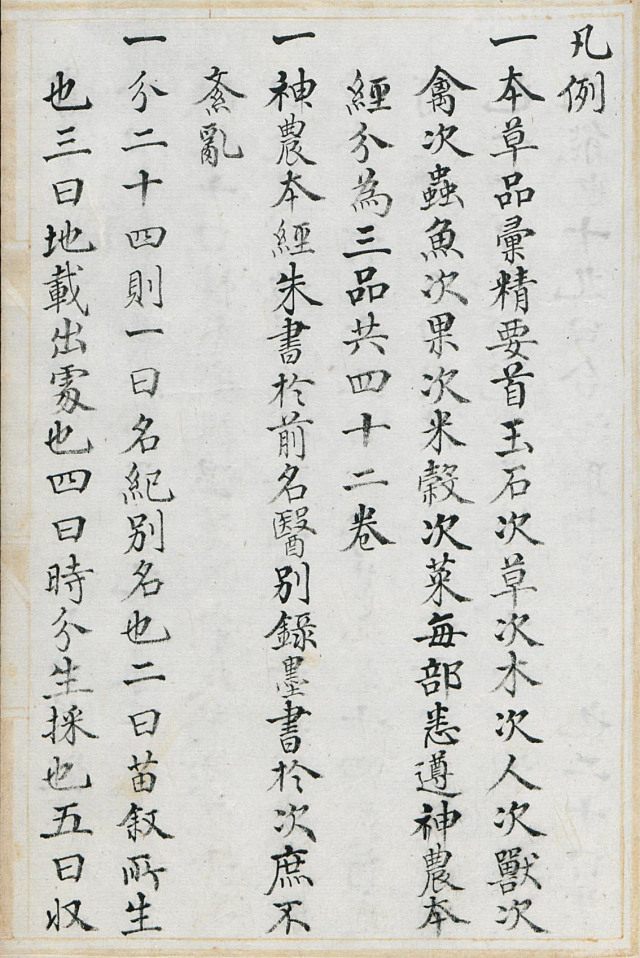 凡例
一本草品彙精要首玉石次草次木次人次獸次
禽次蟲魚次果次米榖次菜每部悉遵神農本
經分為三品共四十二卷
一神農本經朱書於前名醫別錄墨書於次庶不
紊亂
一分二十四則一曰名紀別名也二曰苗叙所生
也三曰地載出䖏也四曰時分生採也五曰収